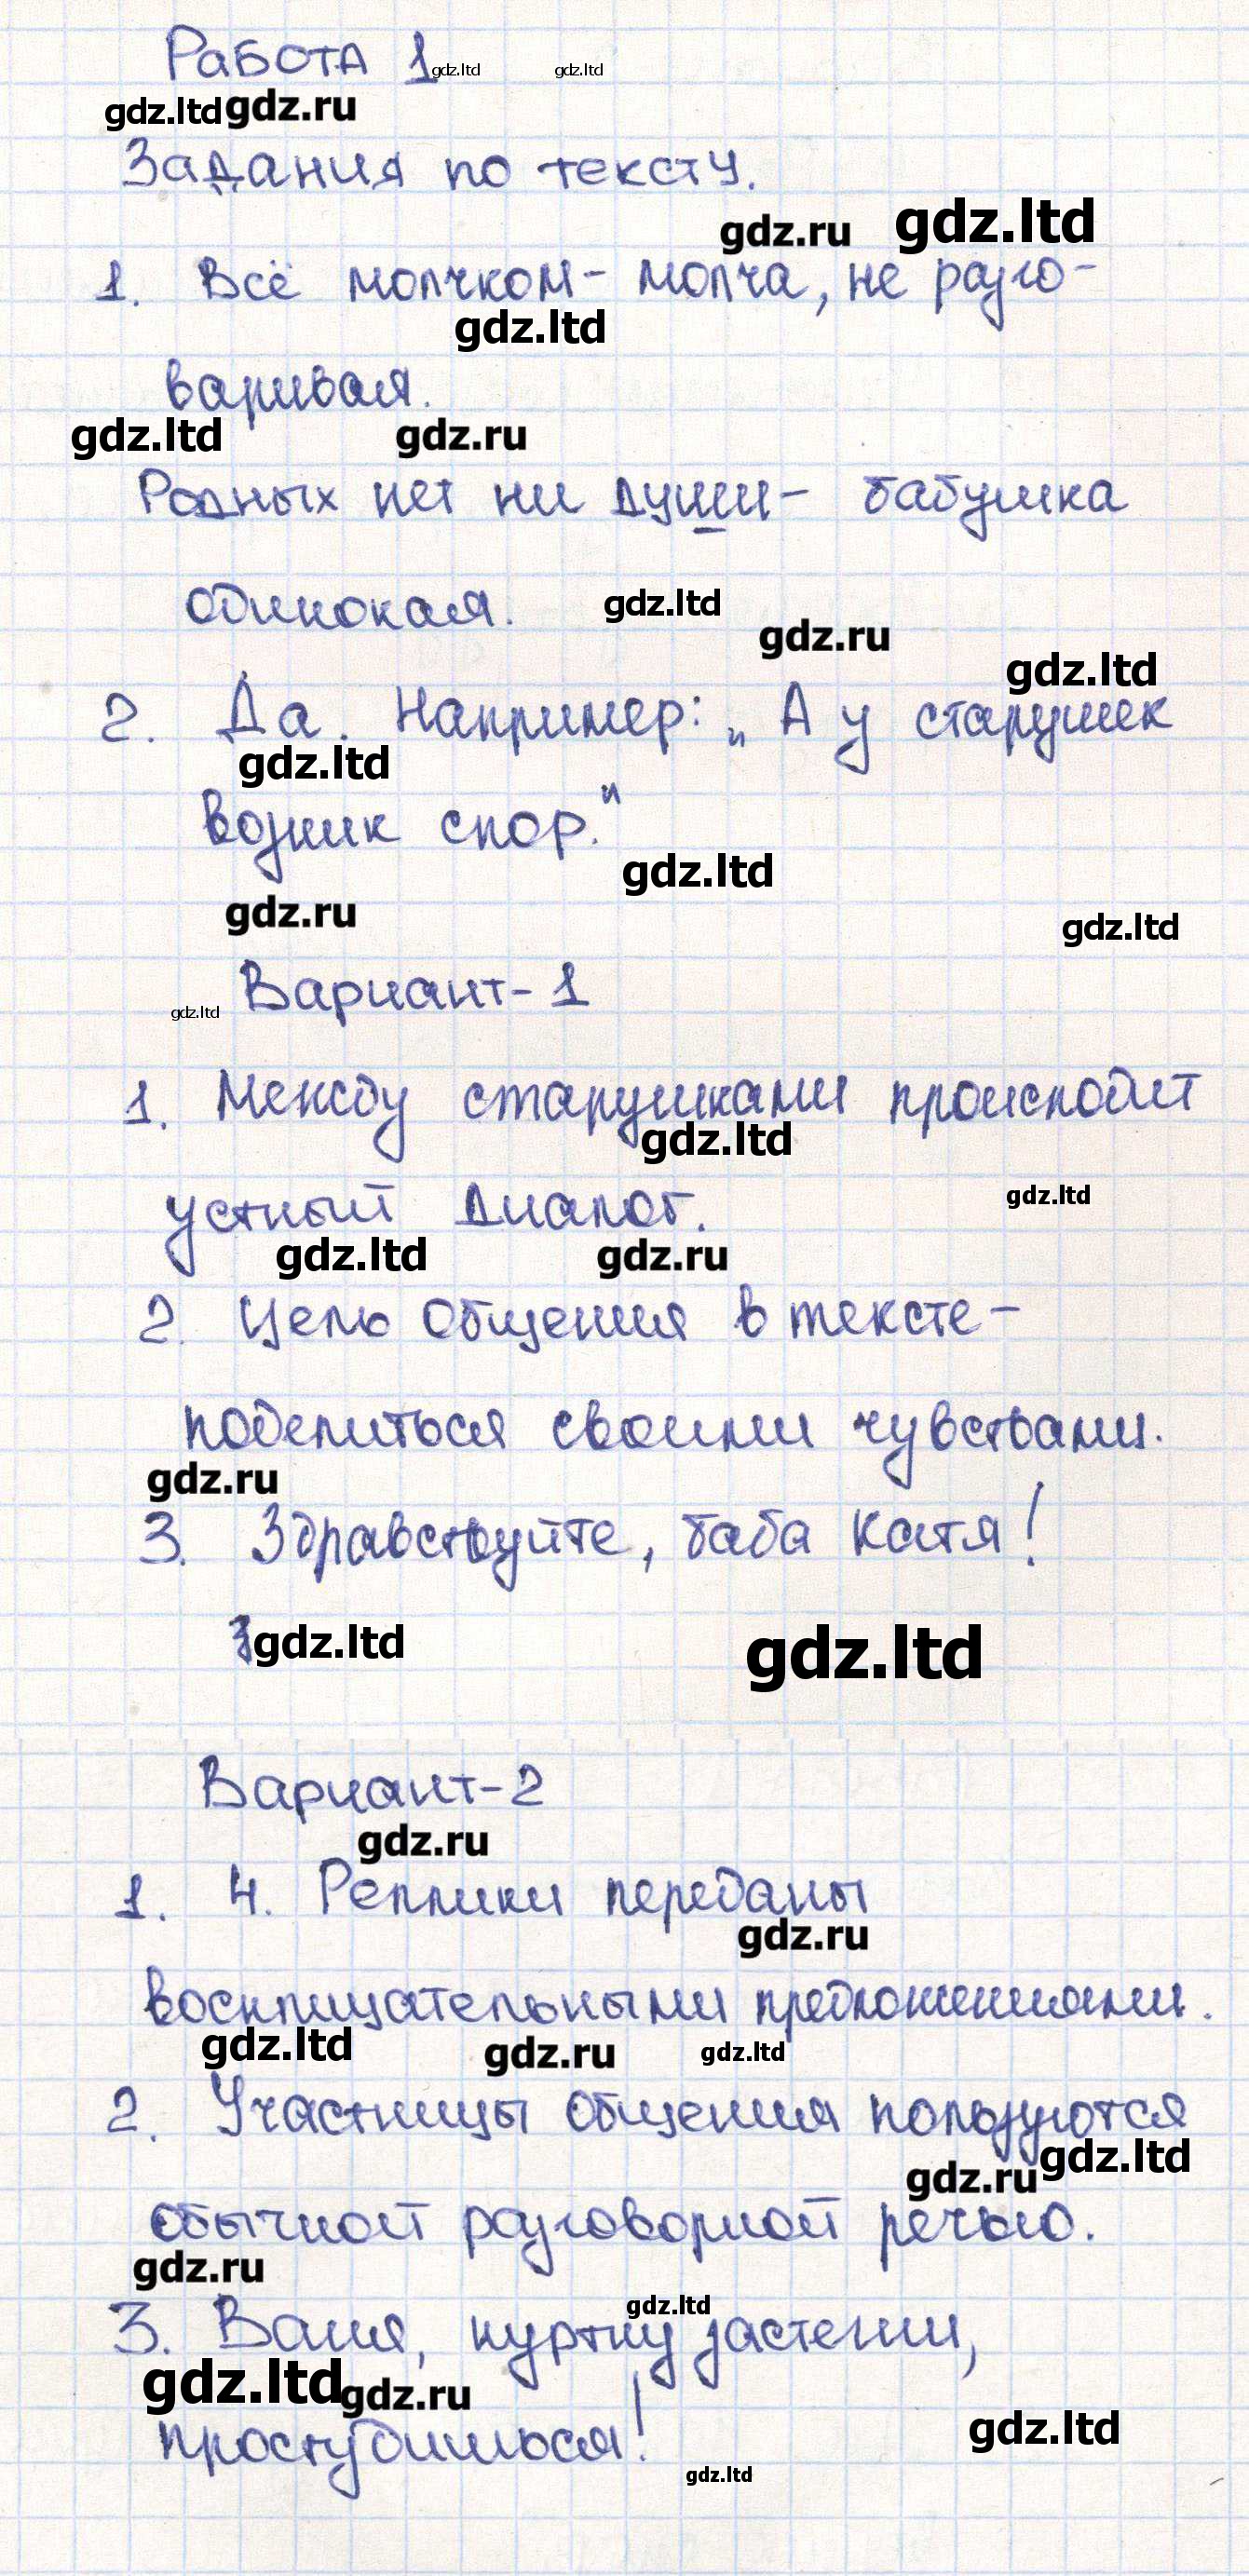 Работа 1
gdz.ltd gdz.ltd
gdz.ltd gdz.ru
Задания по тексту.
gdz.ru gdz.ltd
1. Всё молчком - молча, не разго-
gdz.ltd
варивая.
gdz.ltd gdz.ru
Родных нет ни души - бабушка
одинокая.
gdz.ltd
gdz.ru
gdz.ltd
2. Да. Например: „А у старушек
gdz.ltd
возник спор."
gdz.ltd
gdz.ru
gdz.ltd
Вариант-1
gdz.ltd
1. Между старушками происходит
gdz.ltd
устный диалог.
gdz.ltd
gdz.ltd gdz.ru
2. Цель общения в тексте -
поделиться своими чувствами.
gdz.ru
3. Здравствуйте, баба Катя!
gdz.ltd gdz.ltd
Вариант-2
gdz.ru
1. 4. Реплики переданы
gdz.ru
восклицательными предложениями.
gdz.ltd gdz.ru gdz.ltd
2. Участницы общения пользуются
gdz.ru gdz.ltd
обычной разговорной речью.
gdz.ru
gdz.ltd
3. Ваня, куртку застегни,
gdz.ltd gdz.ru
простудишься!
gdz.ltd
gdz.ltd